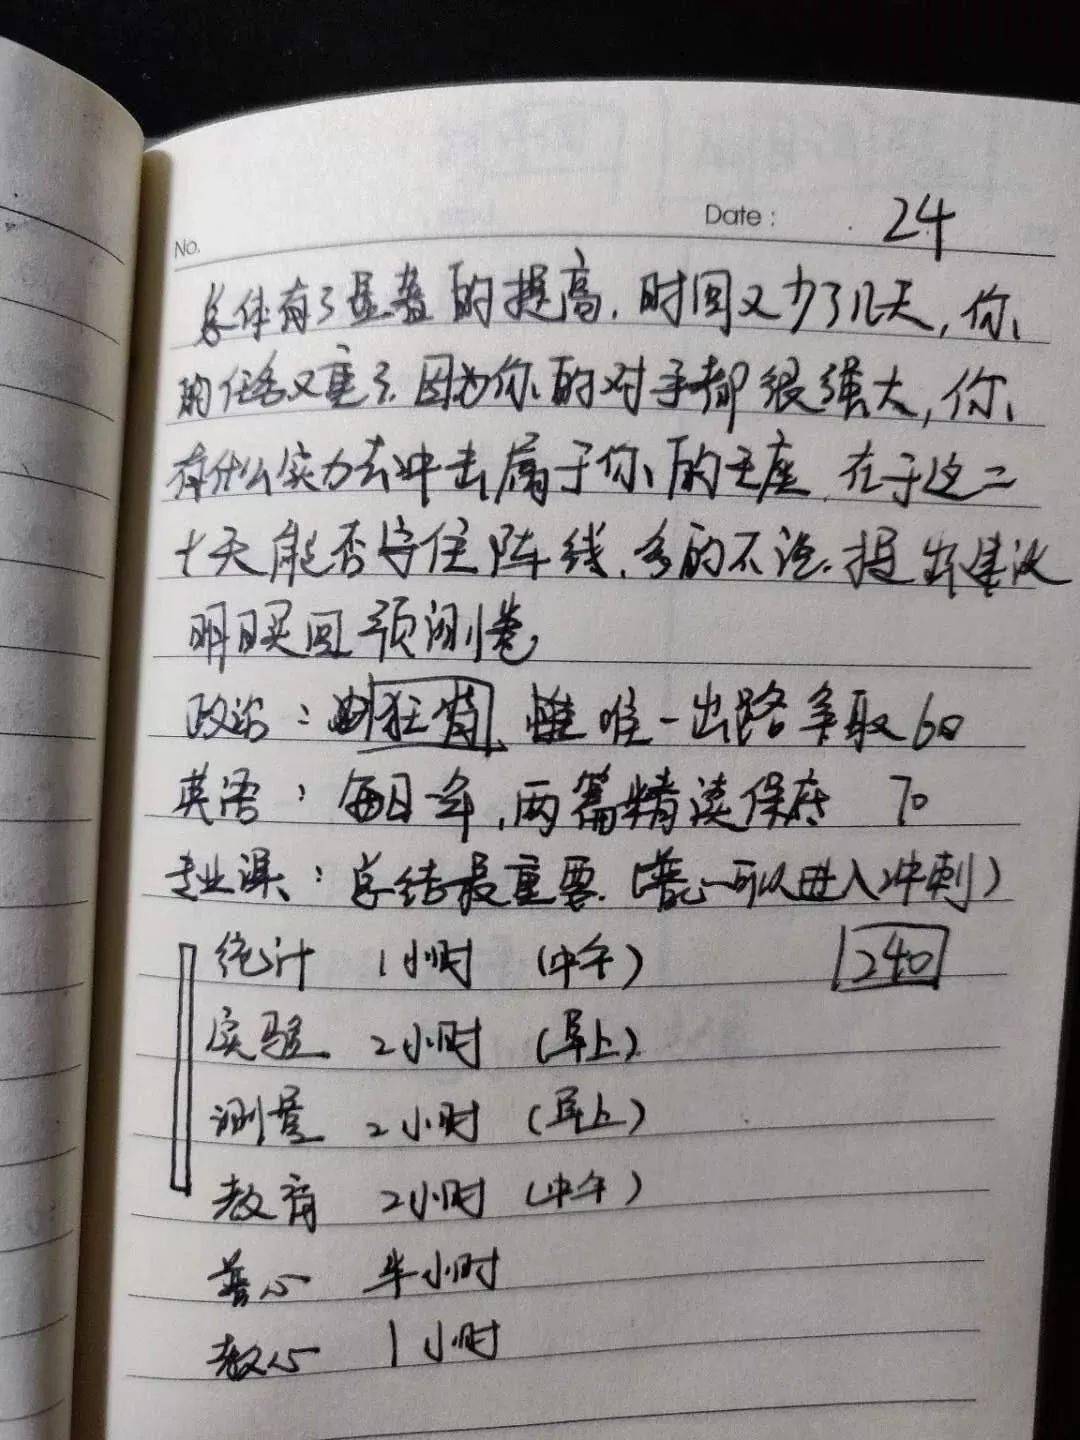 No.
Date: 24
总体有了显著的提高.时间又少了几天,你
的任务又重了.因为你的对手都很强大,你
有什么实力去冲击属于你的王座.在于这二
十天能否守住阵线.多的不说.提出建议
明日买回预测卷
政治: 狂背 唯一出路争取60
英语:每日一年,两篇精读保底 70
专业课:总结最重要.(普心可以进入冲刺)
统计 1小时 (中午) 240
实验 2小时 (早上)
测量 2小时 (早上)
教育 2小时 (中午)
普心 半小时
教心 1小时